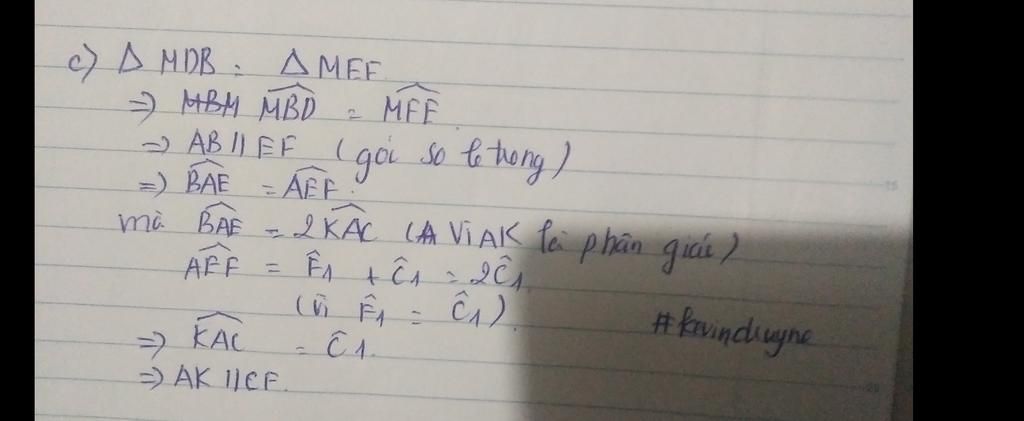 c) Δ MDB = Δ MEF
⇒ MBM $\widehat{MBD}$ = $\widehat{MFE}$.
⇒ AB // EF (gói so le trong)
⇒ $\widehat{BAE}$ = $\widehat{AEF}$.
mà $\widehat{BAE}$ = 2$\widehat{KAC}$ (A Vì AK là phân giác)
$\widehat{AEF}$ = $\hat{F}$1 + $\hat{C}$1 = 2$\hat{C}$1.
(Vì $\hat{F}$1 = $\hat{C}$1).
#kevinduyne
⇒ $\widehat{KAC}$ = $\hat{C}$1.
⇒ AK // CF.